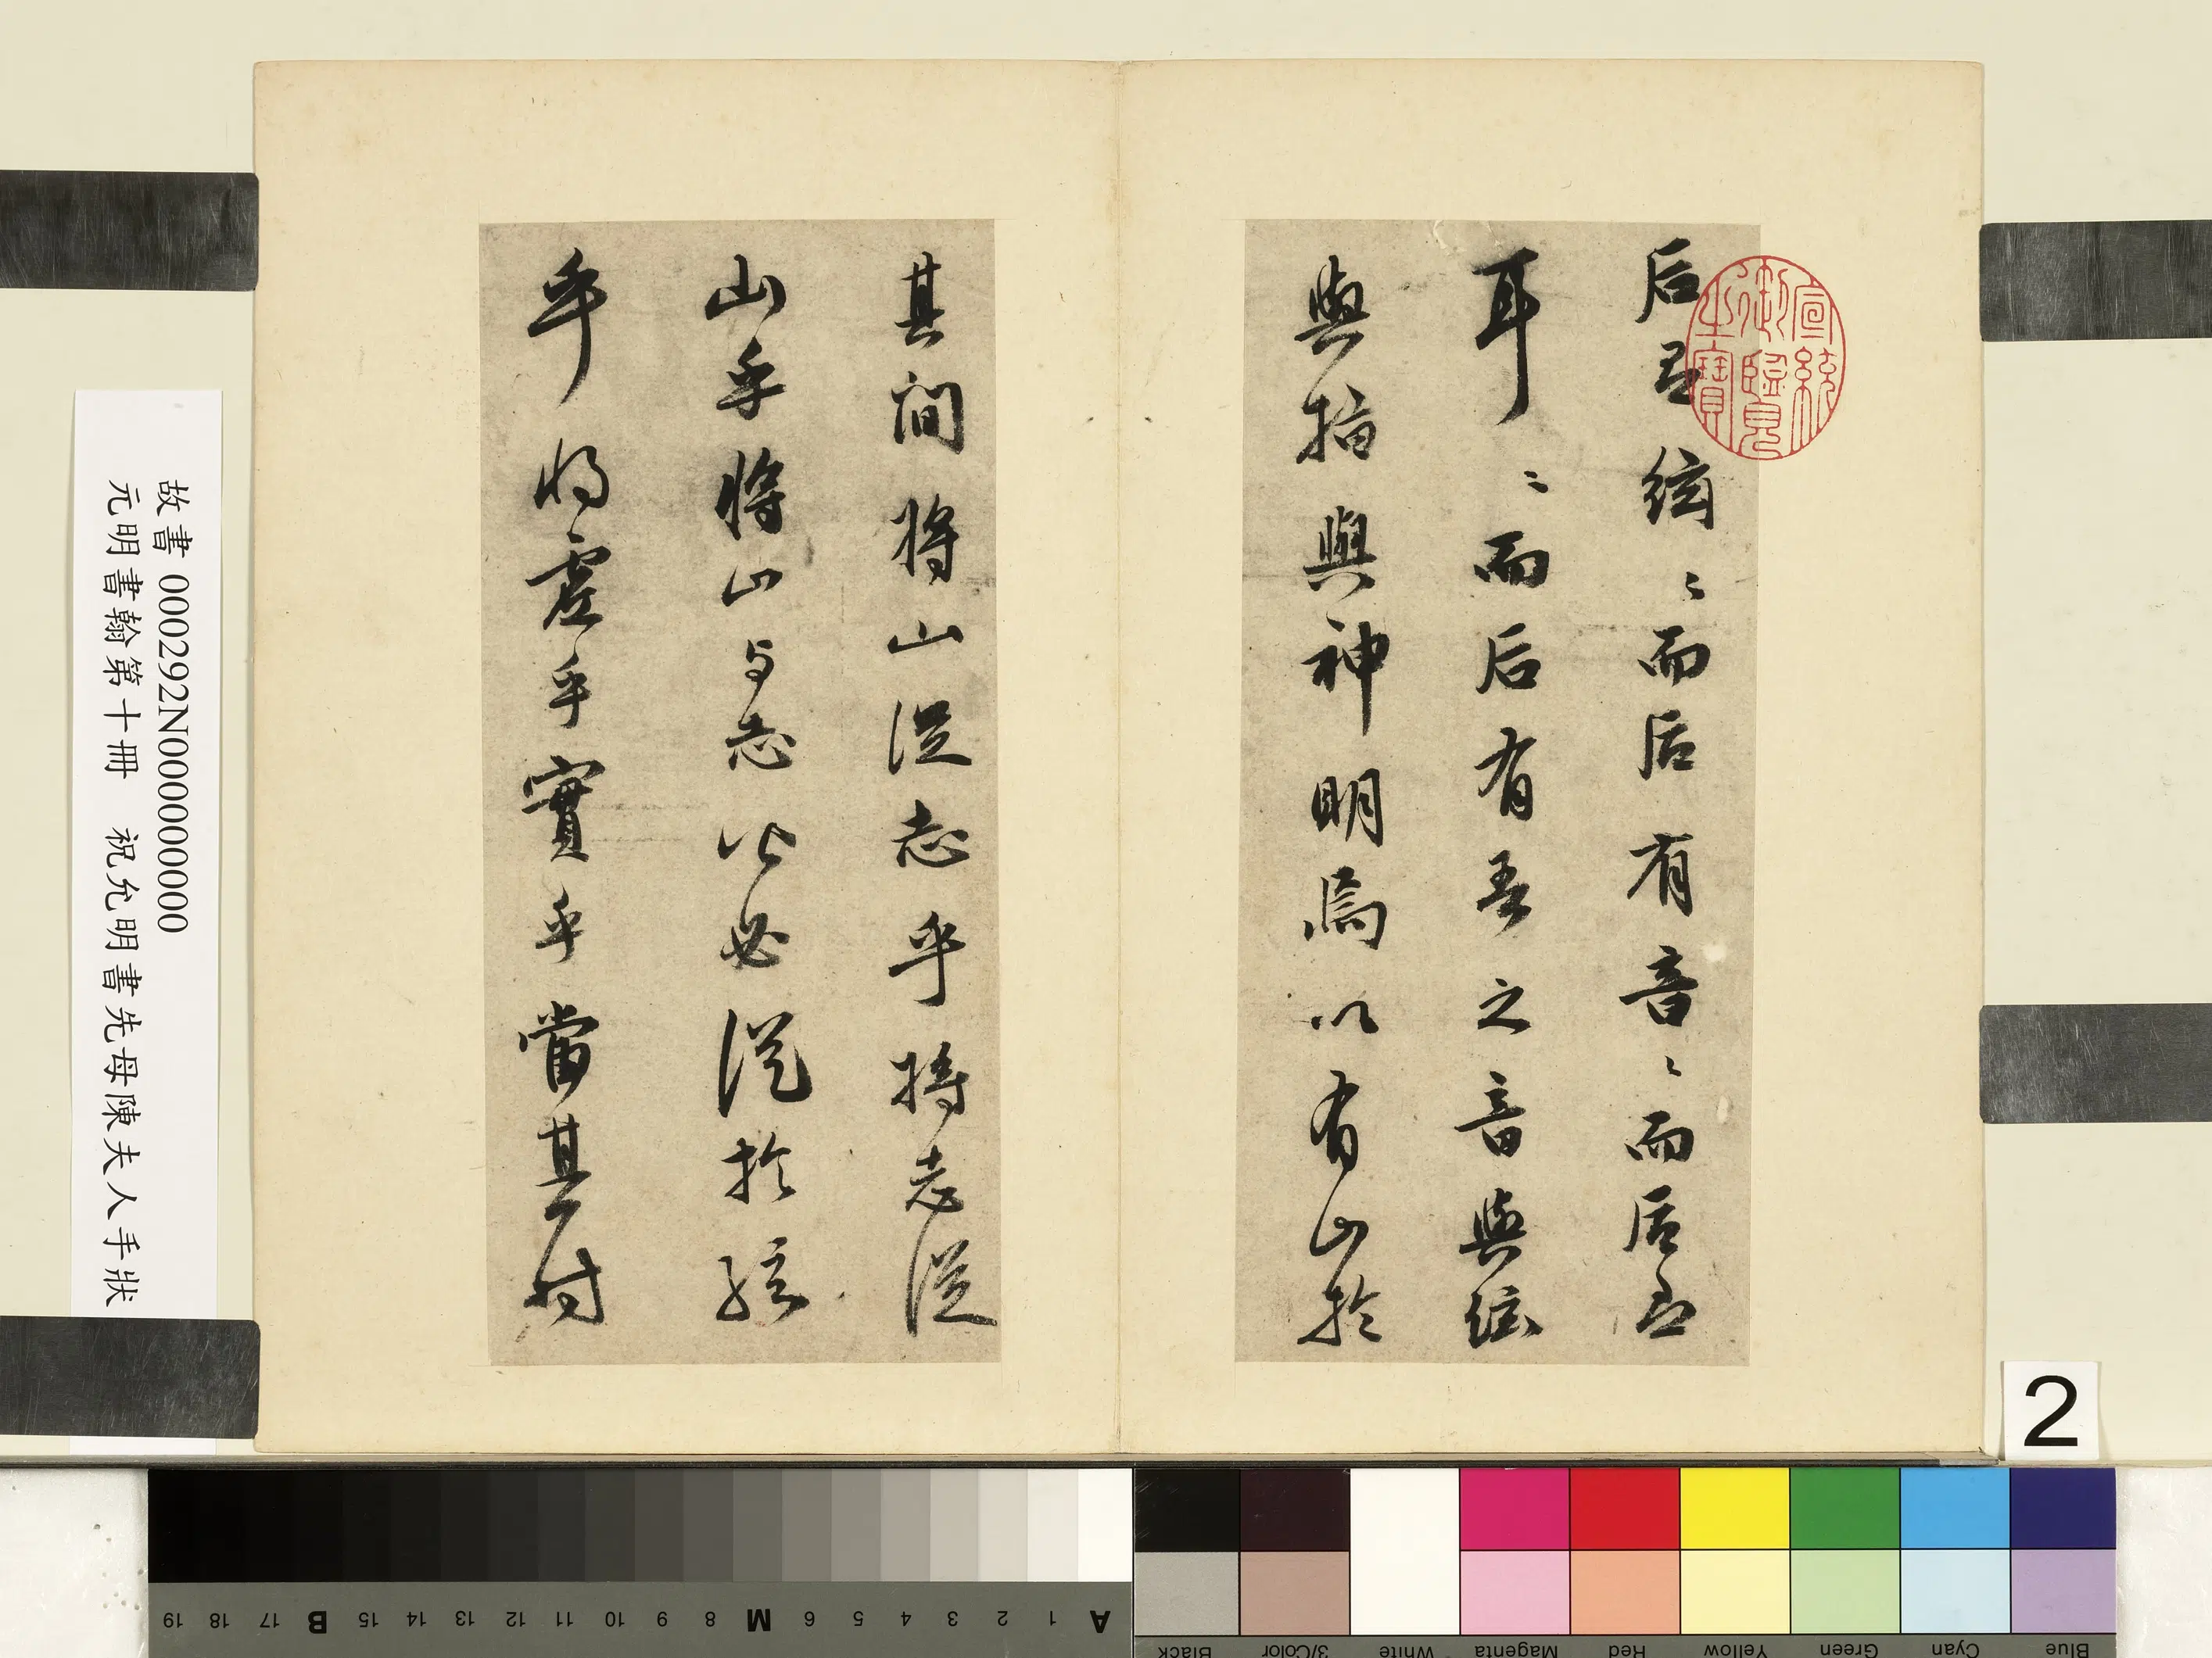 后絃〻而后有音〻而后
耳〻而后有吾之音與絃
與指與神明焉以有山於
其間將山從志乎將志從
山乎將山与志必從於絃
乎將虛乎實乎當其
宣統御覽之寶
故書 000292N000000000
元明書翰第十冊 祝允明書先母陳夫人手狀
2
A 1 2 3 4 5 6 M 8 9 10 11 12 13 14 15 B 17 18 19
Black 3/Color White Magenta Red Yellow Green Cyan Blue